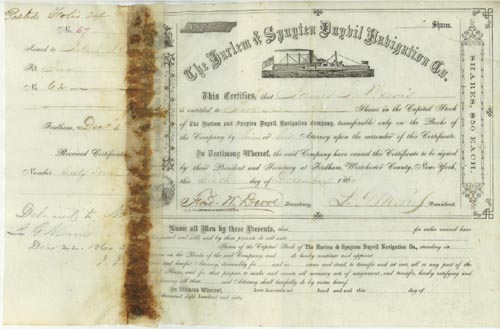 Posted Folio
No. 67
Shares.
The Harlem & Spuyten Duyvil Navigation Co.
Issued to
This Certifies, that
For
is entitled to Shares in the Capital Stock
No. 62
of The Harlem and Spuyten Duyvil Navigation Company, transferable only on the Books of
the Company by or Attorney upon the surrender of this Certificate.
Fordham, Dec
In Testimony Whereof, the said Company have caused this Certificate to be signed
Received Certificate
by their President and Secretary at Fordham, Westchester County, New York,
Number Sixty Seven
this day of December 186
Fred. W. Devoe Secretary. L. G. Morris President.
SHARES, $50 EACH.
Delivered to
L G Morris
Dec 22. 1860
Know all Men by these Presents, that for value received have
bargained and sold, and by these presents do sell unto
Shares of the Capital Stock of The Harlem & Spuyten Duyvil Navigation Co., standing in
name on the Books of the said Company, and do hereby constitute and appoint
and transfer Attorney, irrevocably for and in name and stead, to transfer and set over, all or any part of the
Shares, and for that purpose, to make and execute all necessary acts of assignment, and transfer, hereby ratifying and
confirming all that said Attorney shall lawfully do by virtue hereof.
In Witness Whereof, have hereunto set hand and seal this day of
thousand eight hundred and sixty